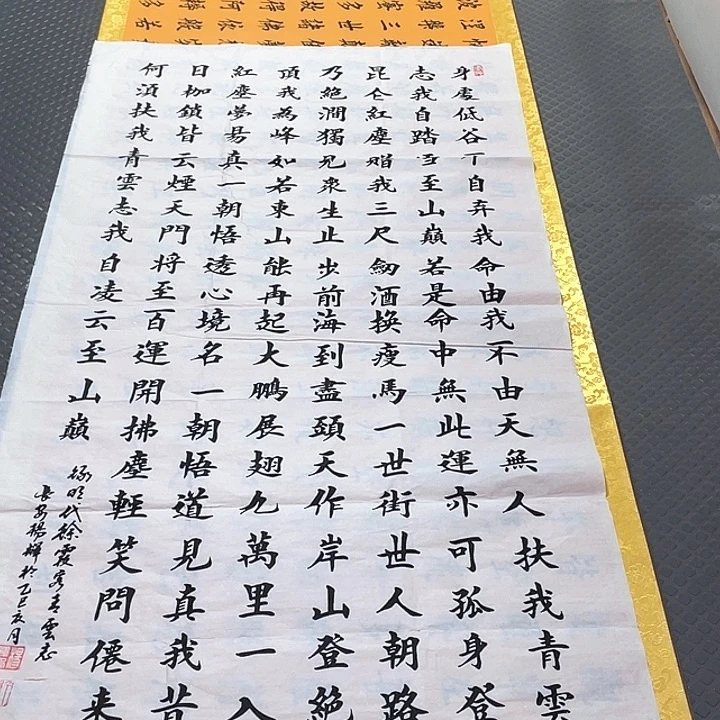 身處低谷丁自弃我命由我不由天無人扶我青雲
志我自踏雪至山巔若是命中無此運亦可孤身登
昆仑紅塵贈我三尺劒酒換瘦馬一世街世人朝路
乃絕澗獨見衆生止步前海到盡頭天作岸山登絕
頂我為峰如若東山能再起大鵬展翅九萬里一入
紅塵夢易真一朝悟透心境名一朝悟道見真我昔
日枷鎖皆云煙天門將至百運開拂塵輕笑問僊来
何須扶我青雲志我自凌云至山巔
錄明代徐霞客青雲志
長安楊輝於乙巳亥月